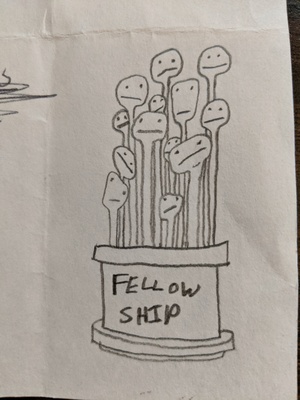 FELLOW
SHIP